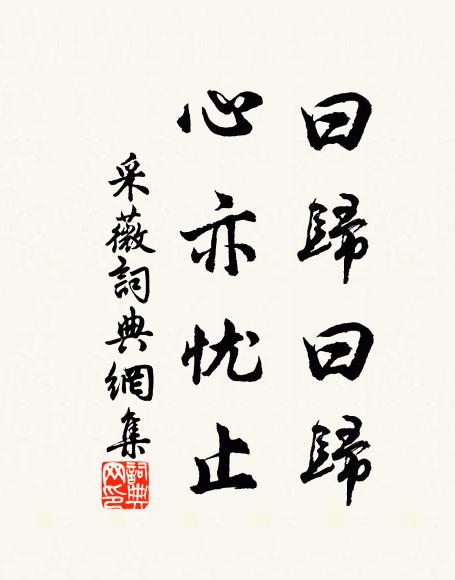 曰歸曰歸
心亦忧止
采薇詞典網集
詞典
网印